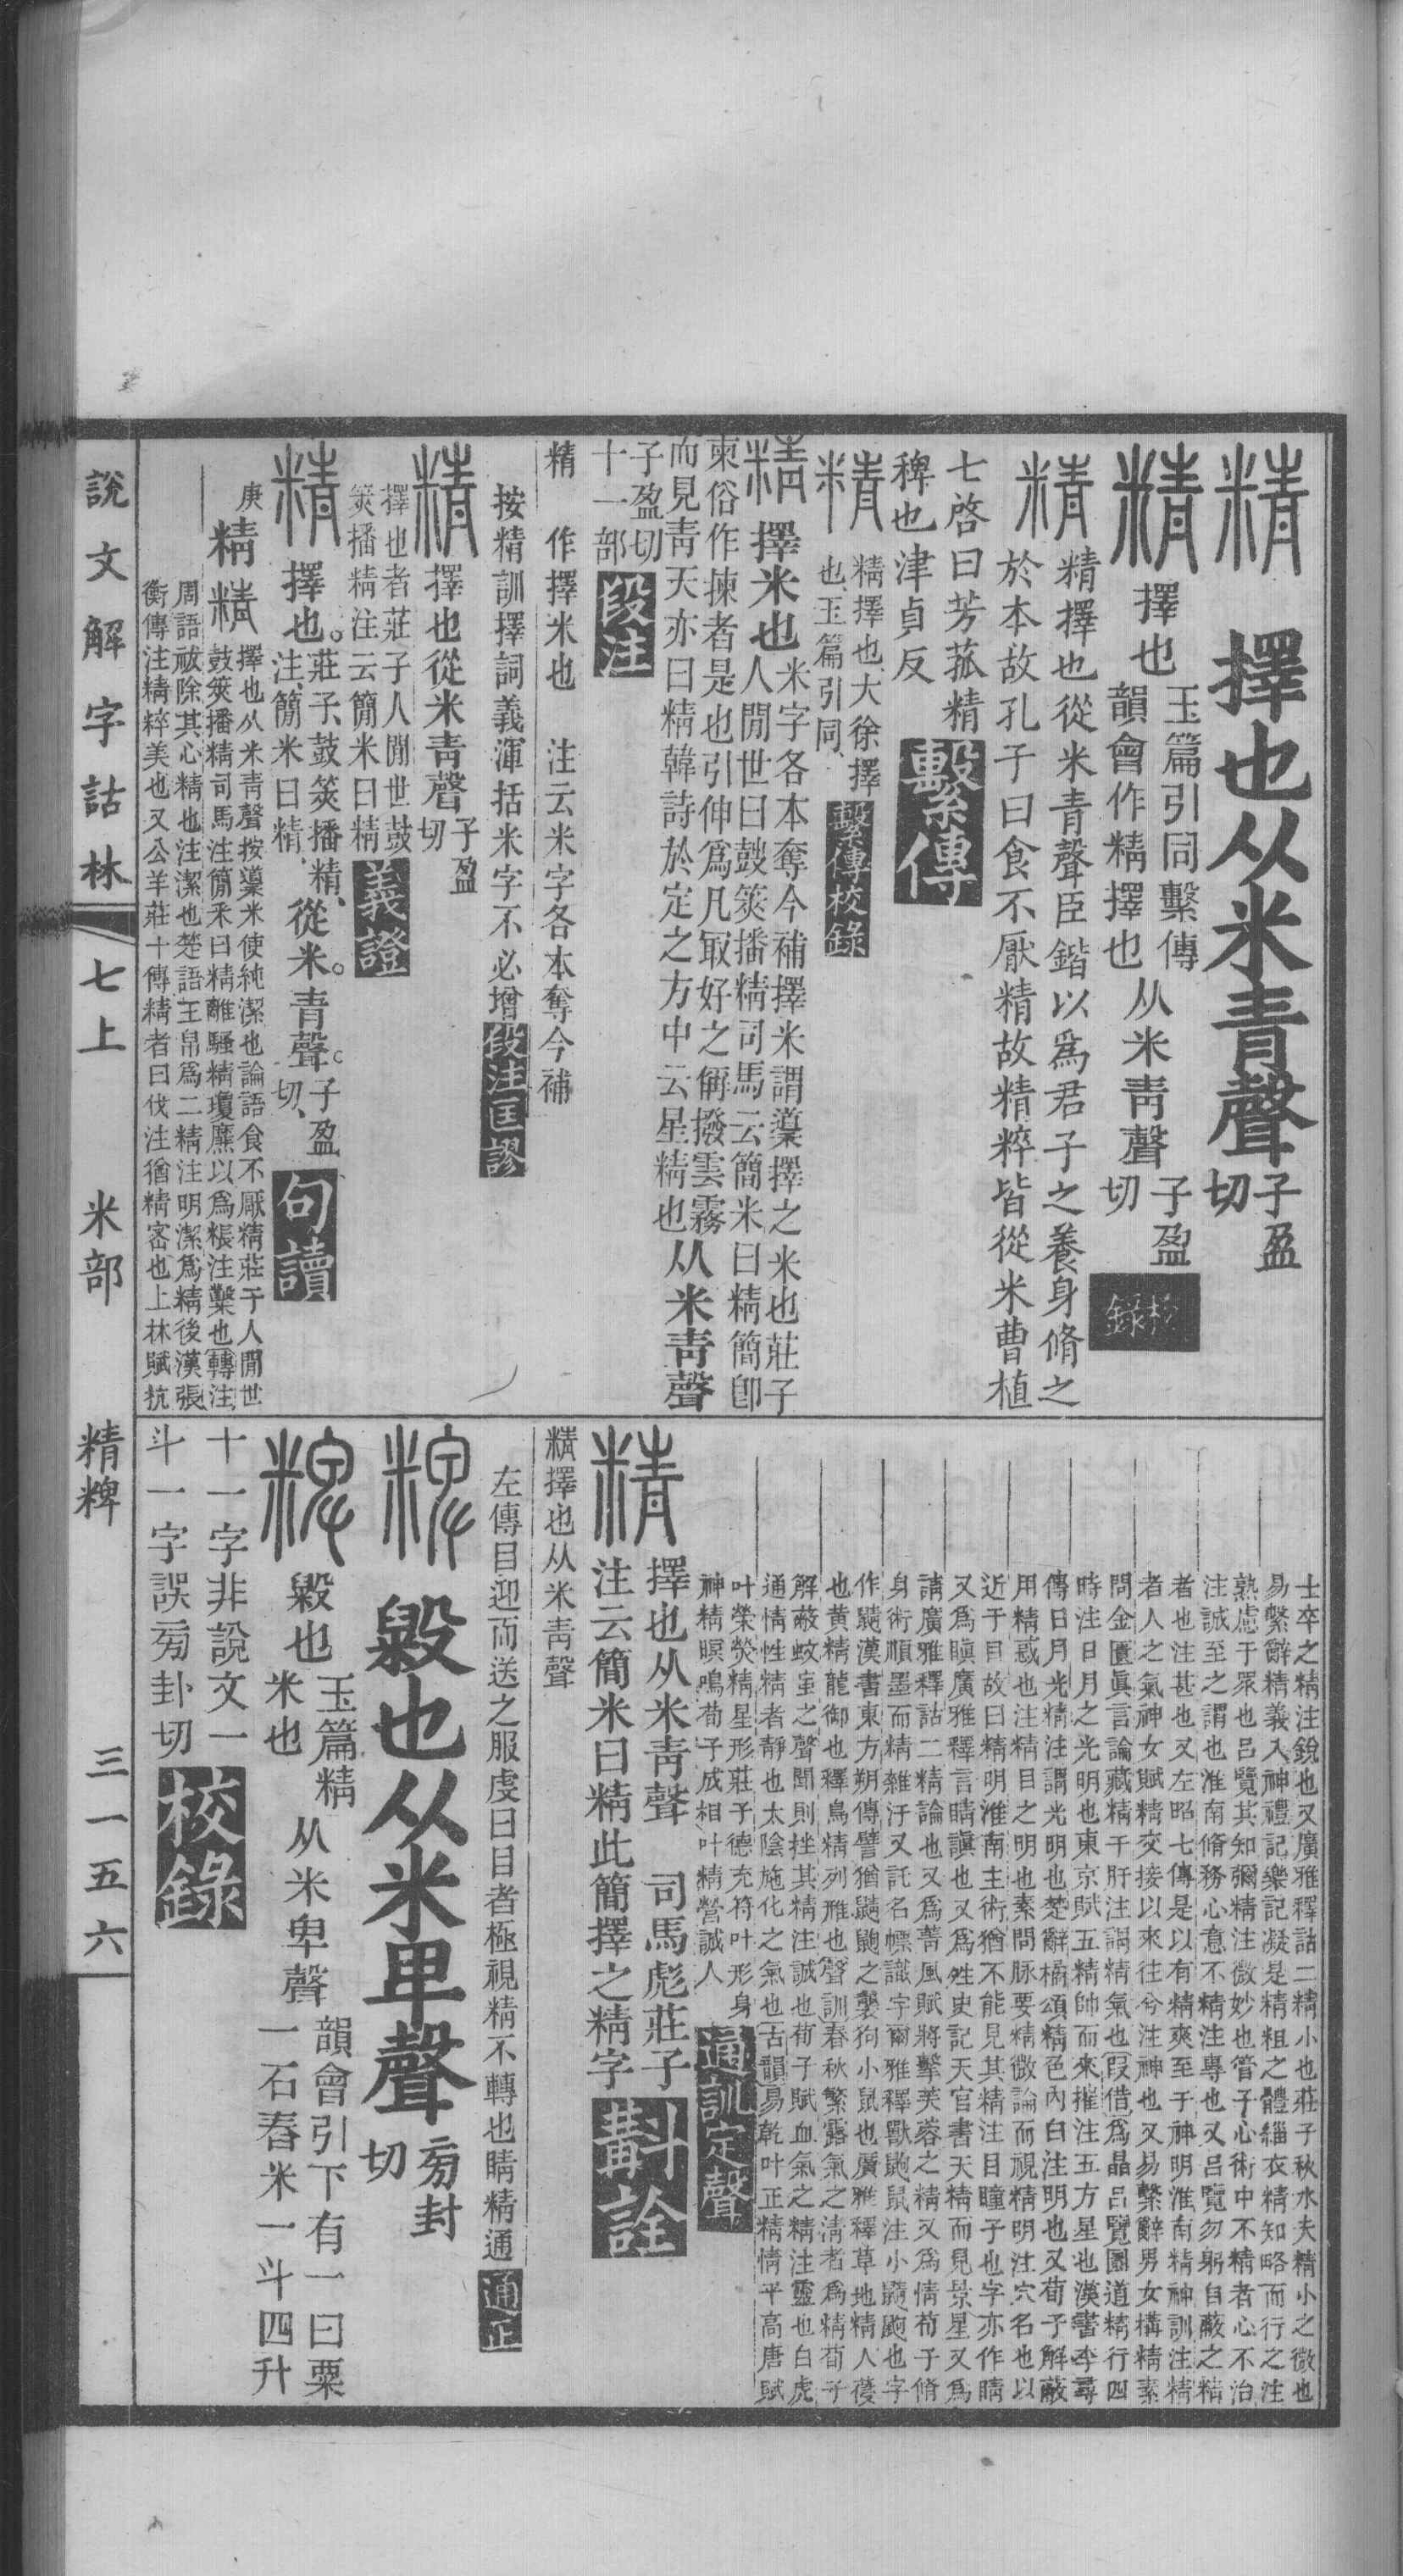 精 擇也从米青聲 子盈切
精 擇也 玉篇引同繫傳韻會作精擇也 从米靑聲 子盈切 校錄
精 精擇也從米青聲臣鍇以爲君子之養身脩之
於本故孔子曰食不厭精故精粹皆從米曹植
七啓曰芳菰精
稗也津貞反 繫傳
精 精擇也、大徐擇也、玉篇引同、 繫傳校錄
精 擇米也 米字各本奪今補擇米謂䆃擇之米也莊子
人閒世曰鼓筴播精司馬云簡米曰精簡卽
柬俗作揀者是也引伸爲凡取好之偁撥雲霧
而見靑天亦曰精韓詩於定之方中云星精也 从米靑聲
子盈切十一部 段注
精 作擇米也 注云米字各本奪今補
按精訓擇詞義渾括米字不必增 段注匡謬
精 擇也從米靑聲 子盈切
擇也者莊子人閒世鼓
筴播精注云簡米曰精 義證
精 擇也。 莊子、鼓筴播精、注、簡米曰精、 從米。靑聲。 子盈切、 句讀
庚 精 精 擇也从米靑聲按䆃米使純潔也論語食不厭精莊子人閒世
鼓筴播精司馬注簡米曰精離騷精瓊爢以爲粻注鑿也轉注
周語祓除其心精也注潔也楚語王帛爲二精注明潔爲精後漢張
衡傳注精粹美也又公羊莊十傳精者曰伐注猶精密也上林賦抗
士卒之精注銳也又廣雅釋詁二精小也莊子秋水夫精小之微也
易繫辭精義入神禮記樂記凝是精粗之體緇衣精知略而行之注
熟慮于眾也呂覽其知彌精注微妙也管子心術中不精者心不治
注誠至之謂也淮南脩務心意不精注專也又呂覽勿躬自蔽之精
者也注甚也又左昭七傳是以有精爽至于神明淮南精神訓注精
者人之氣神女賦精交接以來往兮注神也又易繫辭男女構精素
問金匱眞言論藏精于肝注謂精氣也叚借爲晶呂覽圜道精行四
時注日月之光明也東京賦五精帥而來摧注五方星也漢書李尋
傳日月光精注謂光明也楚辭橘頌精色內白注明也又荀子解蔽
用精惑也注精目之明也素問脈要精微論而視精明注穴名也以
近于目故曰精明淮南主術猶不能見其精注目瞳子也字亦作睛
又爲瞋廣雅釋言睛瞋也又爲姓史記天官書天精而見景星又爲
請廣雅釋詁二精論也又爲菁風賦將擊芙蓉之精又爲情荀子脩
身術順墨而精雜汙又託名幖識字爾雅釋獸鼩鼠注小鼱鼩也字
作鼱漢書東方朔傳譬猶鼱鼩之襲狗小鼠也廣雅釋草地精人葠
也黃精龍御也釋鳥精列雅也聲訓春秋繁露氣之淸者爲精荀子
解蔽蚊䖟之聲聞則挫其精注誠也荀子賦血氣之精注靈也白虎
通情性精者靜也太陰施化之氣也古韻易乾叶正精情平高唐賦
叶榮熒精星形莊子德充符叶形身
神精暝鳴荀子成相叶精營誠人 通訓定聲
精 擇也从米靑聲 司馬彪莊子
注云簡米曰精此簡擇之精字 斠詮
精擇也从米靑聲
左傳目迎而送之服虔曰目者極視精不轉也睛精通 通正
粺 毇也从米卑聲 旁卦切
粺 毇也 玉篇精米也 从米卑聲 韻會引下有一曰粟
一石舂米一斗四升
十一字非說文一
斗一字誤旁卦切 校錄
說文解字詁林 七上 米部 精粺 三一五六